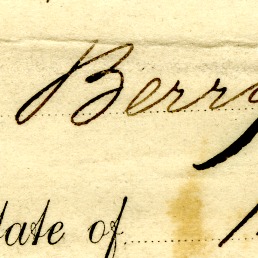 Berry
date of